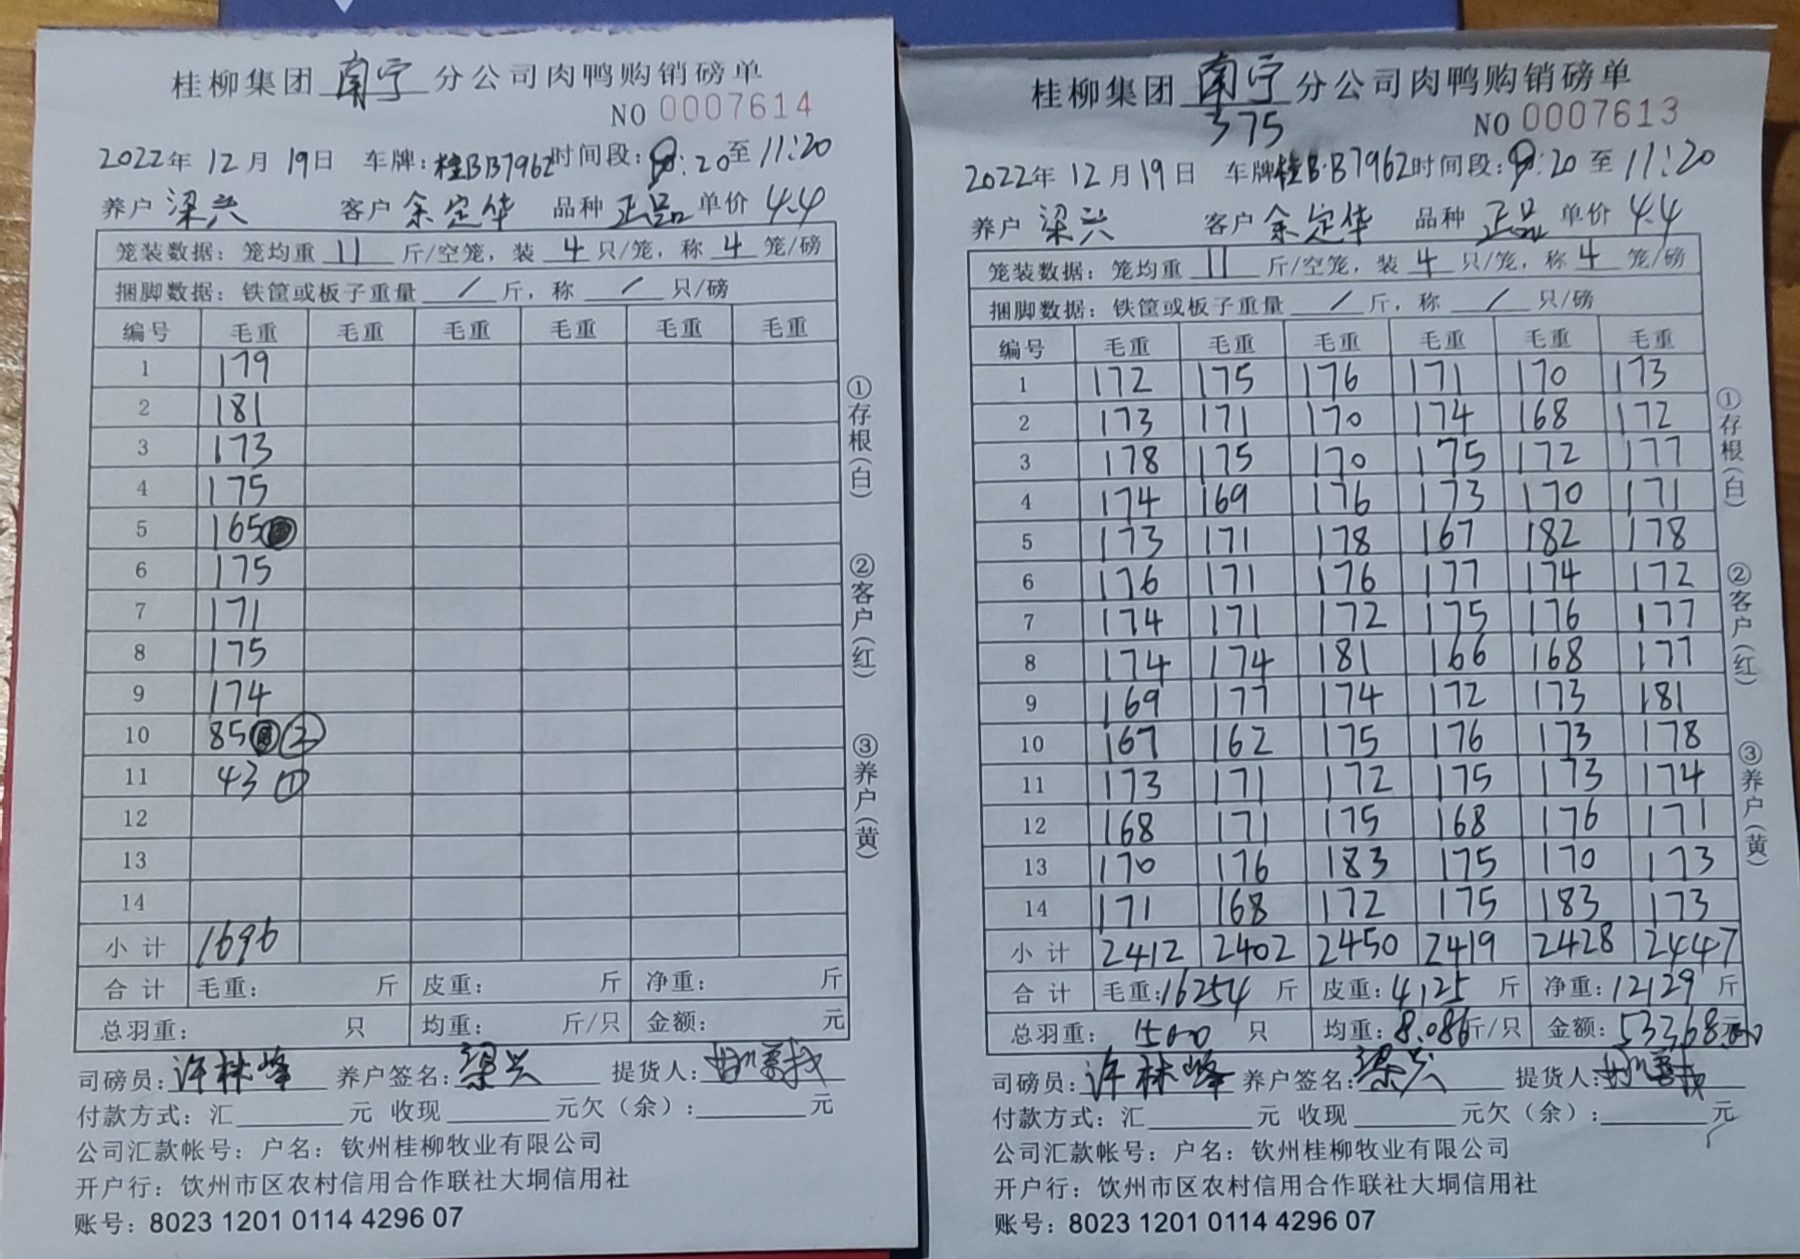 桂柳集团 南宁 分公司肉鸭购销磅单
NO 0007614
2022年 12月 19日 车牌: 桂BB7962 时间段: :20 至 11:20
养户 梁兴 客户 余定华 品种 正品 单价 4.4
笼装数据: 笼均重 11 斤/空笼, 装 4 只/笼, 称 4 笼/磅
捆脚数据: 铁筐或板子重量 / 斤, 称 / 只/磅
编号 毛重 毛重 毛重 毛重 毛重 毛重
1 179
2 181
3 173
4 175
5 165
6 175
7 171
8 175
9 174
10 85 ②
11 43 ①
12
13
14
小计 1696
合计 毛重: 斤 皮重: 斤 净重: 斤
总羽重: 只 均重: 斤/只 金额: 元
司磅员: 许林峰 养户签名: 梁兴 提货人:
付款方式: 汇 元 收现 元欠(余): 元
公司汇款帐号: 户名: 钦州桂柳牧业有限公司
开户行: 钦州市区农村信用合作联社大垌信用社
账号: 8023 1201 0114 4296 07
①存根(白) ②客户(红) ③养户(黄)
桂柳集团 南宁 分公司肉鸭购销磅单
375
NO 0007613
2022年 12月 19日 车牌 桂B·B7962 时间段: :20 至 11:20
养户 梁兴 客户 余定华 品种 正品 单价 4.4
笼装数据: 笼均重 11 斤/空笼, 装 4 只/笼, 称 4 笼/磅
捆脚数据: 铁筐或板子重量 / 斤, 称 / 只/磅
编号 毛重 毛重 毛重 毛重 毛重 毛重
1 172 175 176 171 170 173
2 173 171 170 174 168 172
3 178 175 170 175 172 177
4 174 169 176 173 170 171
5 173 171 178 167 182 178
6 176 171 176 177 174 172
7 174 171 172 175 176 177
8 174 174 181 166 168 177
9 169 177 174 172 173 181
10 167 162 175 176 173 178
11 173 171 172 175 173 174
12 168 171 175 168 176 171
13 170 176 183 175 170 173
14 171 168 172 175 183 173
小计 2412 2402 2450 2419 2428 2447
合计 毛重: 16254 斤 皮重: 4125 斤 净重: 12129 斤
总羽重: 1500 只 均重: 8.086 斤/只 金额: 53368.00 元
司磅员: 许林峰 养户签名: 梁兴 提货人:
付款方式: 汇 元 收现 元欠(余): 元
公司汇款帐号: 户名: 钦州桂柳牧业有限公司
开户行: 钦州市区农村信用合作联社大垌信用社
账号: 8023 1201 0114 4296 07
①存根(白) ②客户(红) ③养户(黄)